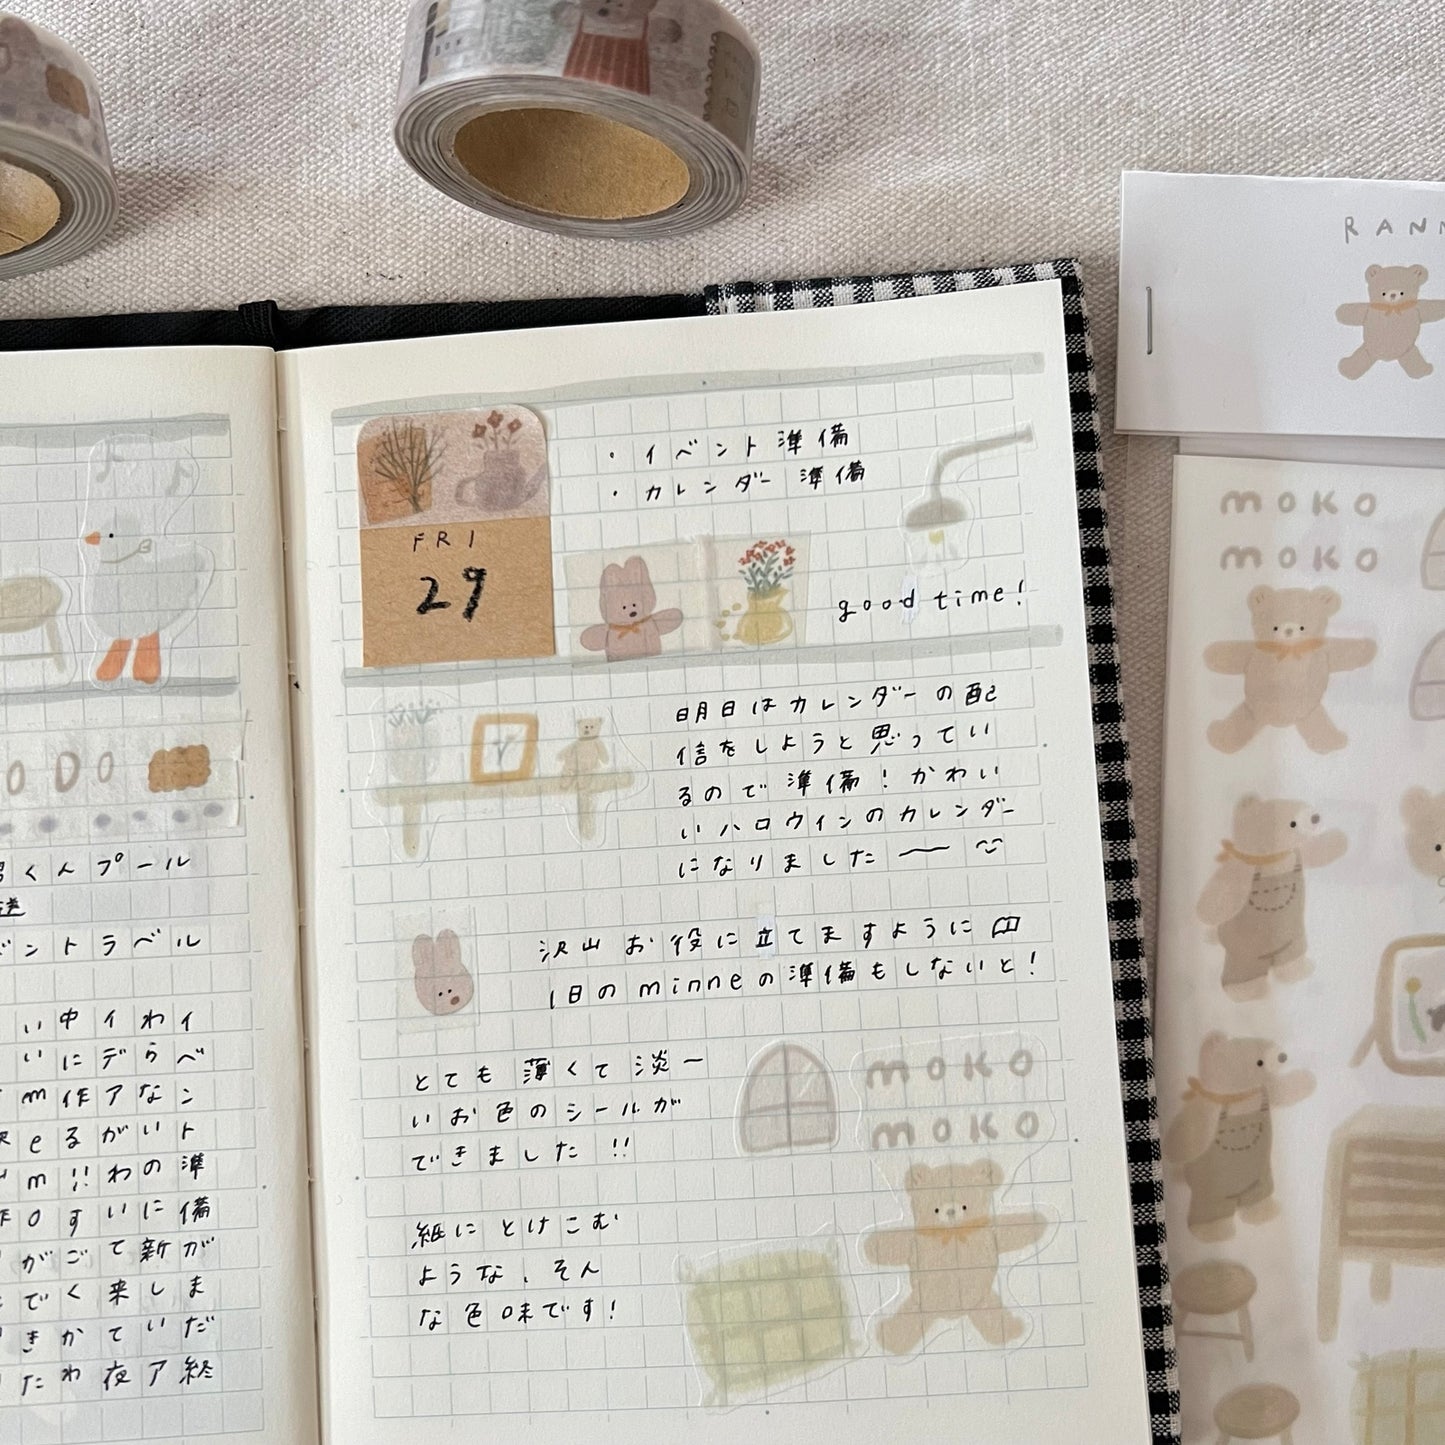 FRI
29
・イベント準備
・カレンダー準備
good time!
明日はカレンダーの配
信をしようと思ってい
るので準備！かわい
いハロウィンのカレンダー
になりました〜
沢山お役に立てますように
1日のminneの準備もしないと！
とても薄くて淡ー
いお色のシールが
できました!!
MOKO
MOKO
紙にとけこむ
ような、そん
な色味です！
ODO
くんプール
ントラベル
い中イわイ
いにデらベ
m作アなン
eるがいト
m!!わの準
0すいに備
がごて新が
でく来しま
きかていだ
たわ夜ア終
RANN
MOKO
MOKO